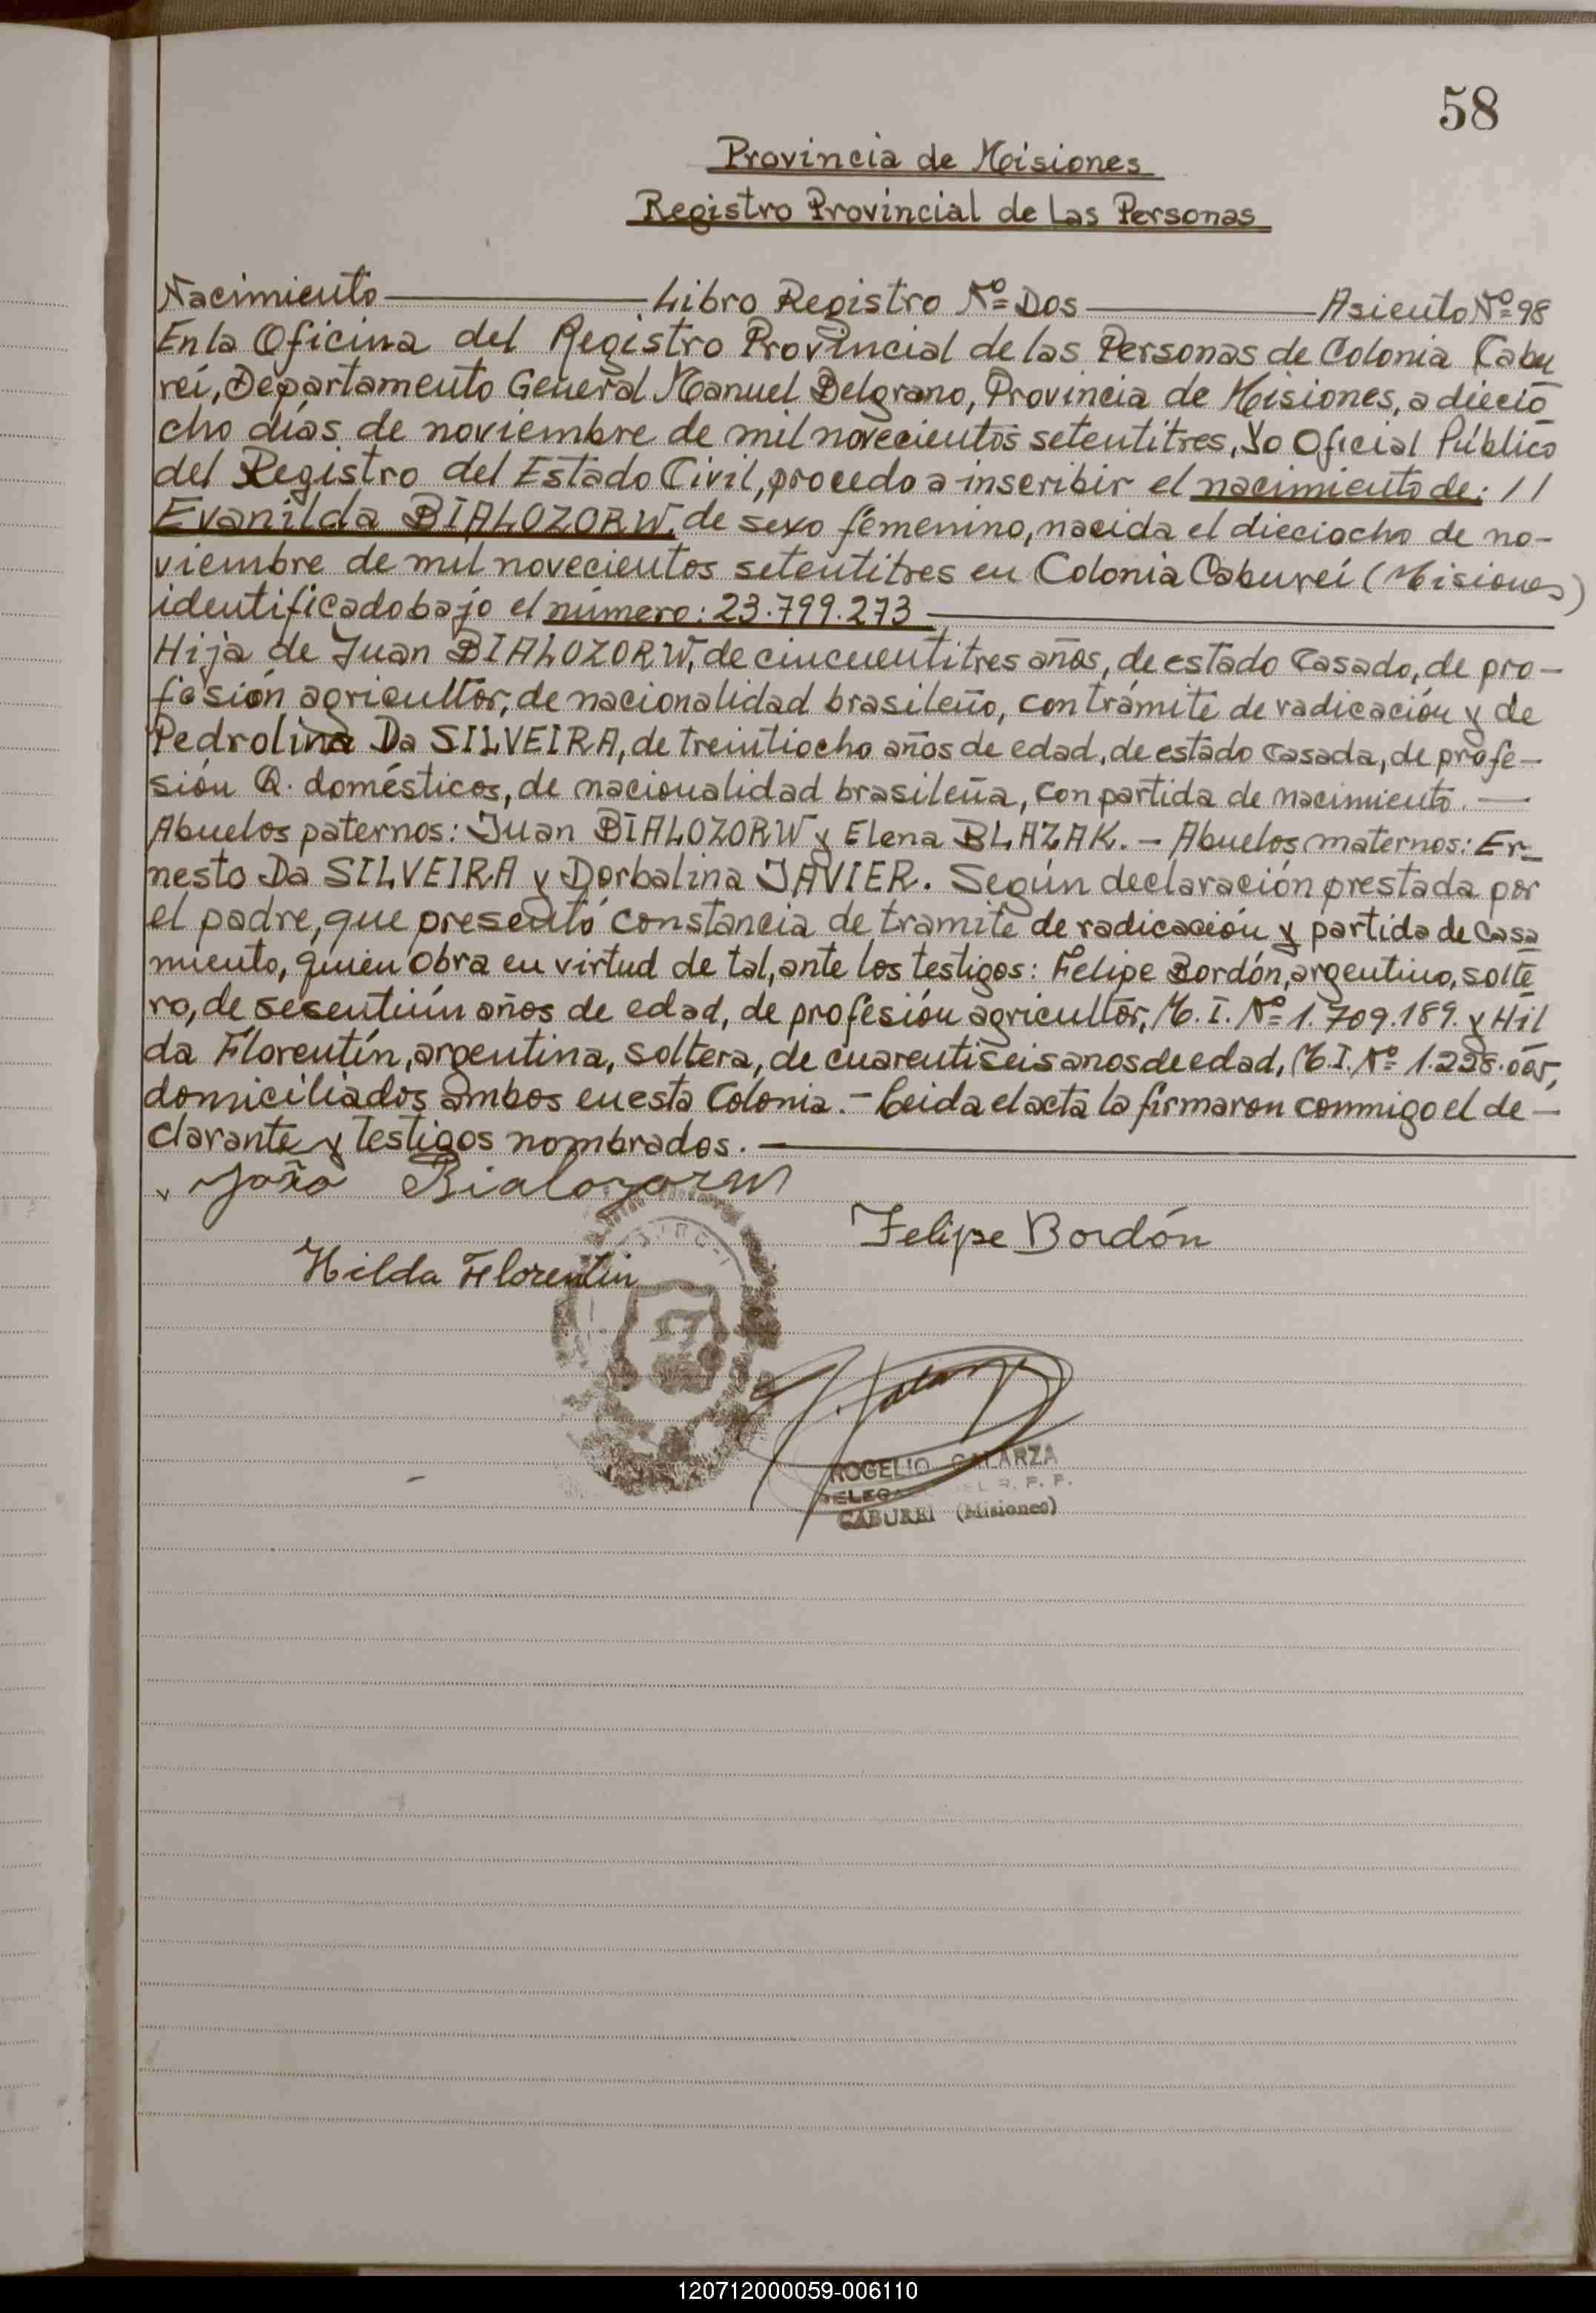 58
Provincia de Misiones
Registro Provincial de las Personas
Nacimiento Libro Registro Nº Dos Asiento Nº 98
En la Oficina del Registro Provincial de las Personas de Colonia Cabu
reí, Departamento General Manuel Belgrano, Provincia de Misiones, a diecio
cho días de noviembre de mil novecientos setentitres, Yo Oficial Público
del Registro del Estado Civil, procedo a inscribir el nacimiento de: //
Evanilda BIALOZORW, de sexo femenino, nacida el dieciocho de no-
viembre de mil novecientos setentitres en Colonia Cabureí (Misiones)
identificado bajo el número: 23.799.273
Hija de Juan BIALOZORW, de cincuentitres años, de estado casado, de pro-
fesión agricultor, de nacionalidad brasileño, con trámite de radicación y de
Pedrolina Da SILVEIRA, de treintiocho años de edad, de estado casada, de profe-
sión Q. domésticos, de nacionalidad brasileña, con partida de nacimiento. —
Abuelos paternos: Juan BIALOZORW y Elena BLAZAK. - Abuelos maternos: Er-
nesto Da SILVEIRA y Dorbalina JAVIER. Según declaración prestada por
el padre, que presentó constancia de tramite de radicación y partida de casa
miento, quien obra en virtud de tal, ante los testigos: Felipe Bordón, argentino, solte
ro, de sesentiún años de edad, de profesión agricultor, M. I. Nº 1.709.189. y Hil
da Florentín, argentina, soltera, de cuarentiseis anos de edad, M. I. Nº 1.228.005,
domiciliados ambos en esta Colonia. - Leida el acta la firmaron conmigo el de-
clarante y testigos nombrados. —
João Bialozorw
Felipe Bordón
Hilda Florentin
ROGELIO GALARZA
CABUREI (Misiones)
120712000059-006110